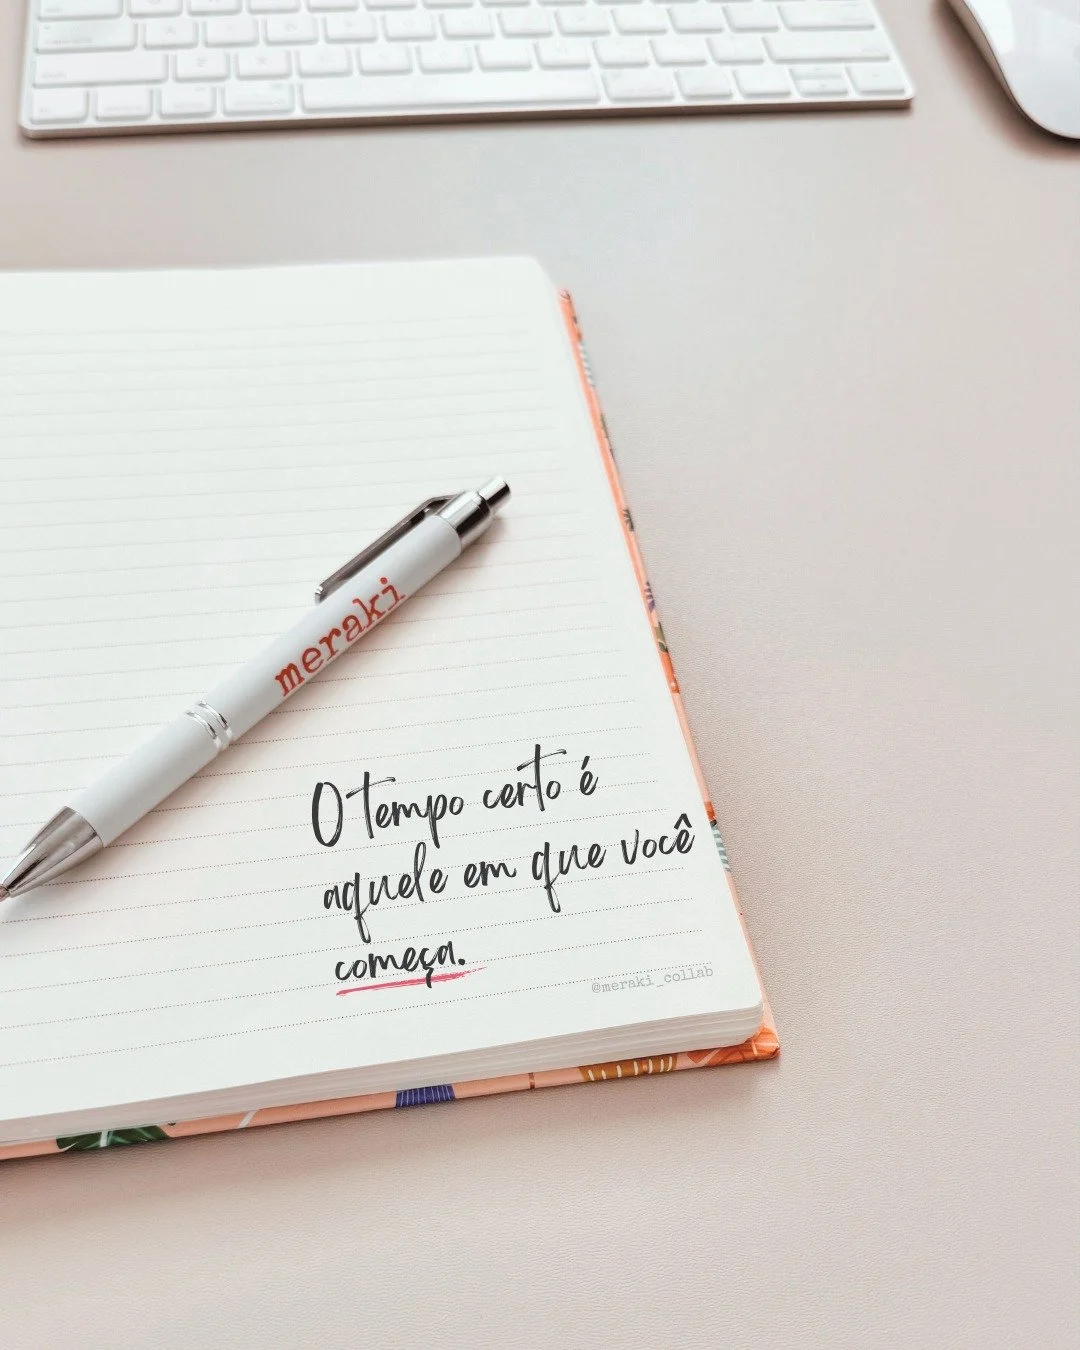 meraki
O tempo certo é
aquele em que você
começa.
@meraki_collab